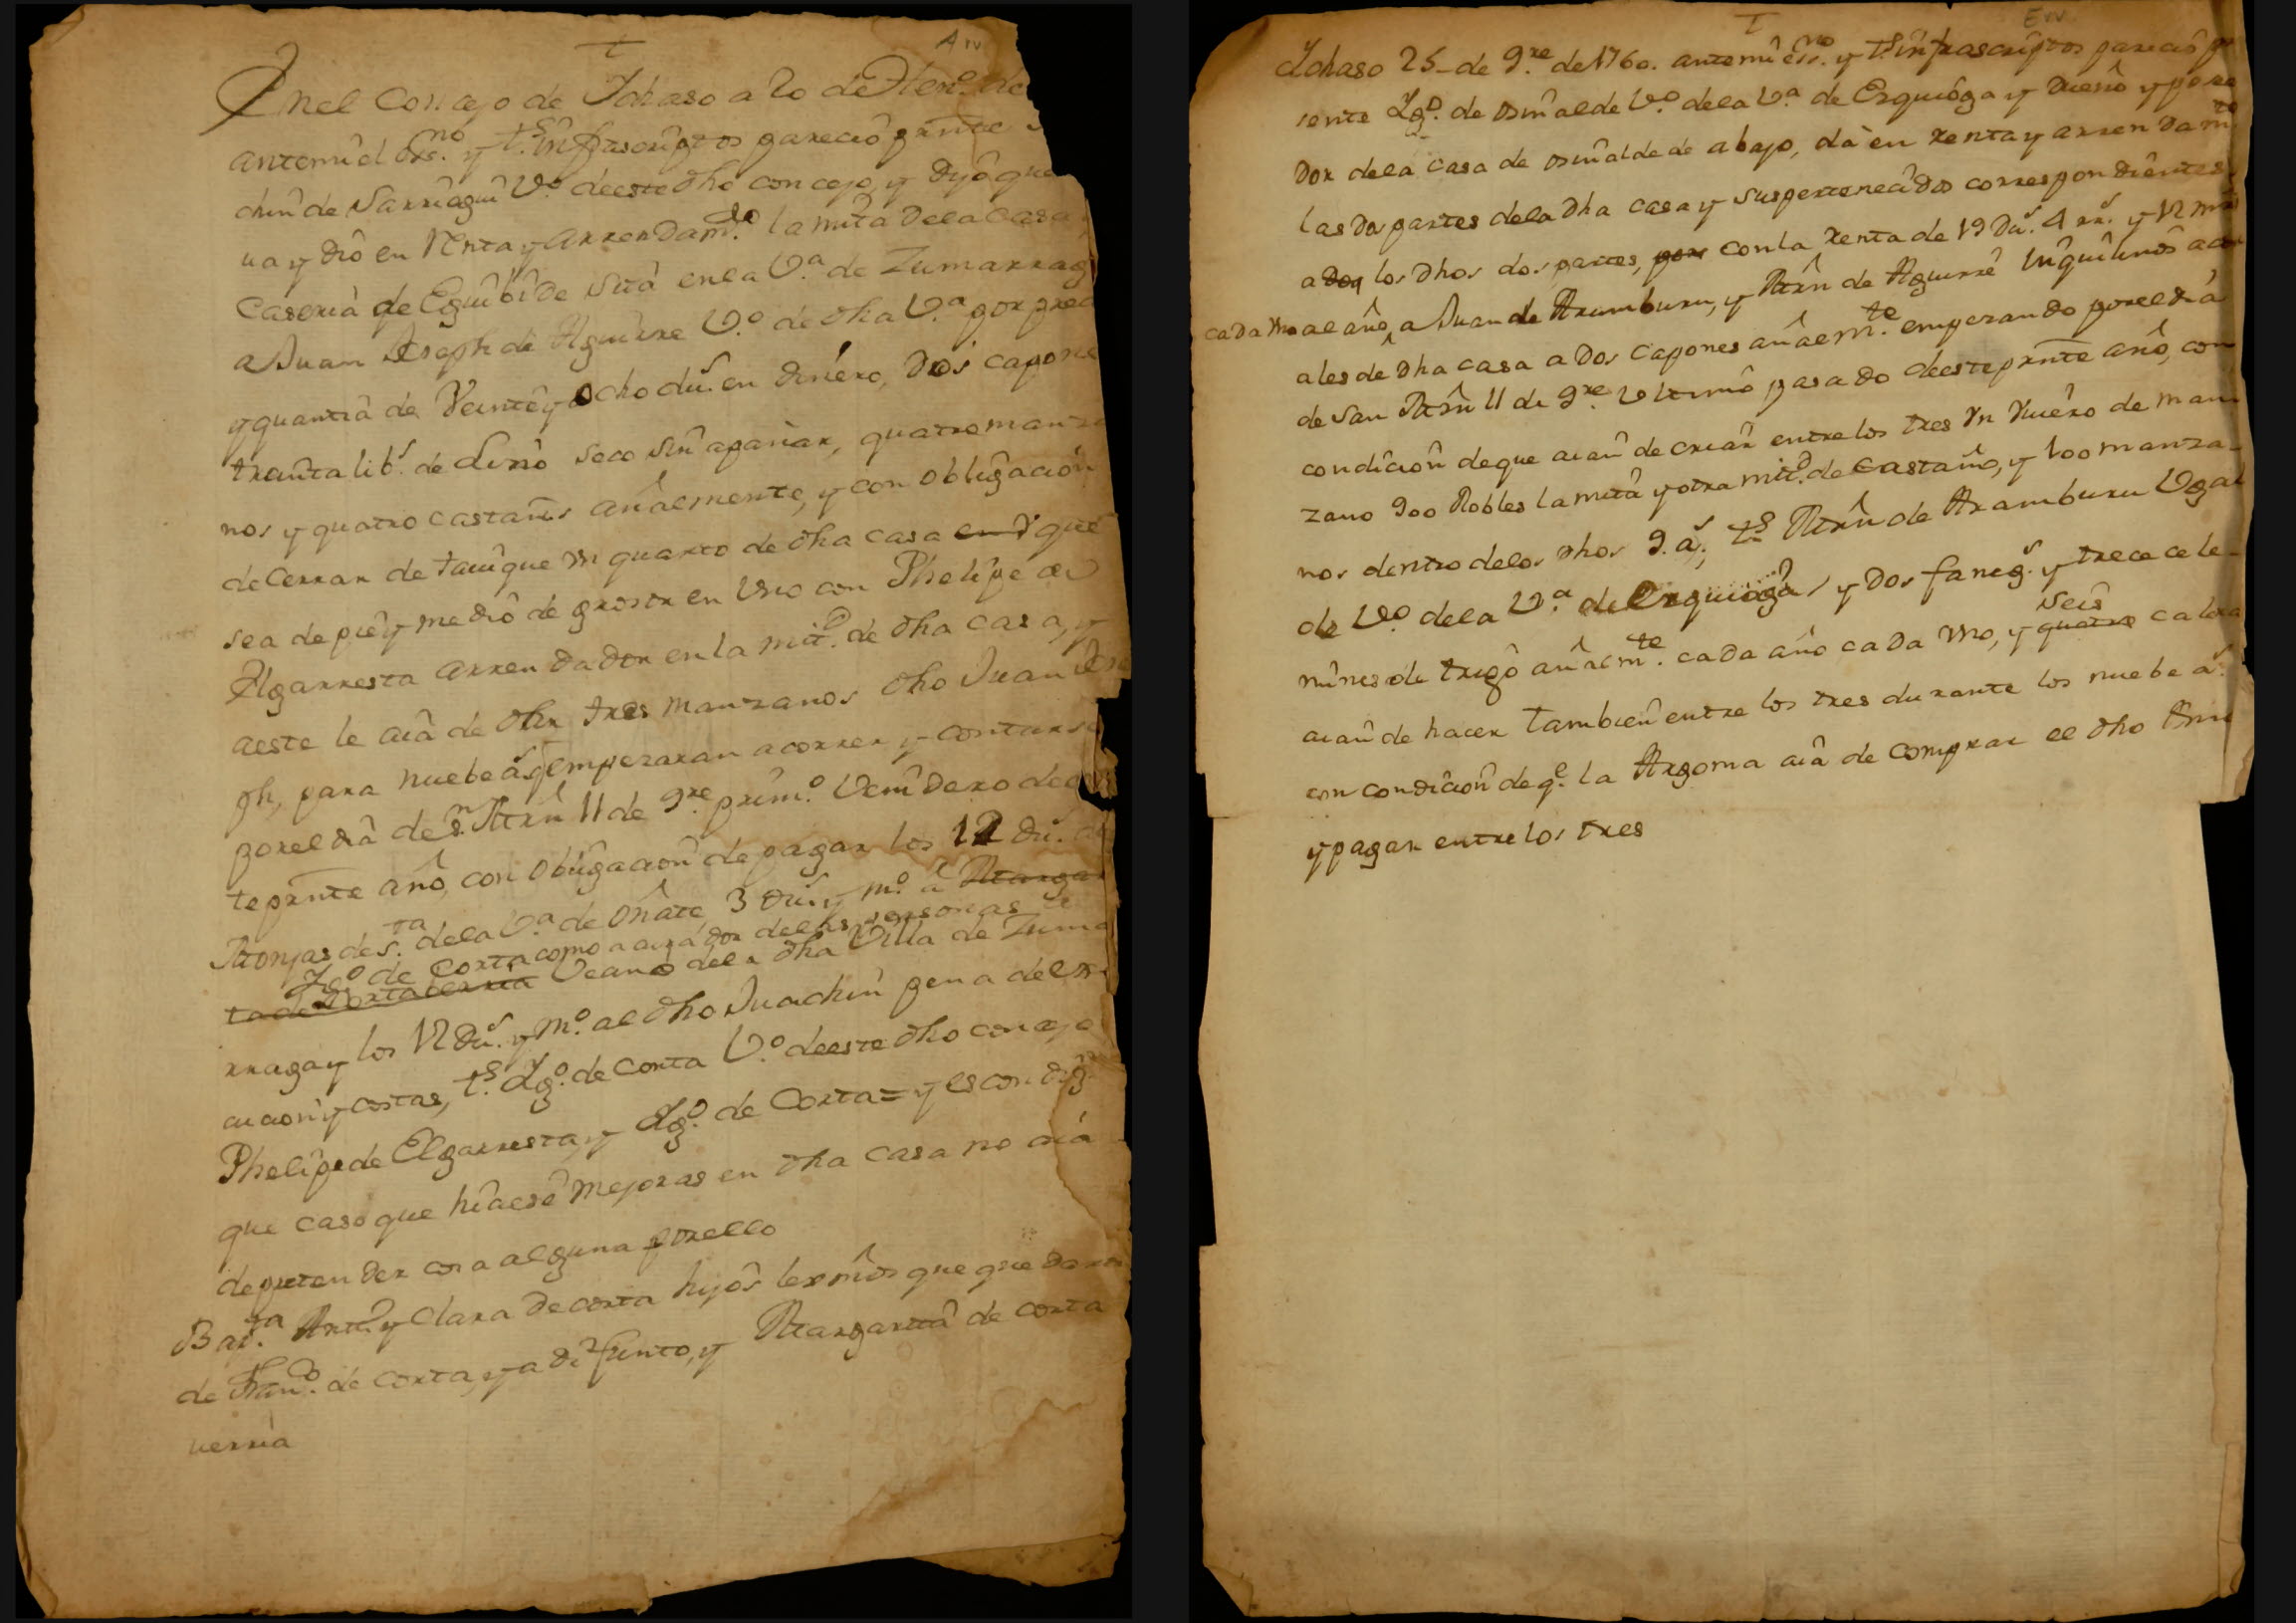 Arr
En el Concejo de Ichaso a 20 de Hen.o de
ante mi el Ess.no y t.s infrascriptos pareciô prnte
chin de Sarriegui V.o de este dho concejo, y dijo que
va y diô en Renta y arrendam.to la mita de la Casa
Caseria de Eguibide sita en la V.a de Zumarrag
a Juan Joseph de Aguirre V.o de dha V.a por prec
y quantia de Veinte y ocho du.s en dinero, Dos capone
treinta lib.s de Lino seco sin apañar, quatro manza
nos y quatro castaños anâlmente, y con obligaciôn
de Cerrar de tavique un quarto de dha casa que
sea de pie y medio de grosor en Uso con Phelipe de
Elgarresta arrendador en la mit.d de dha casa, y
a este le aiâ de dhar tres manzanos dho Juan Jose
ph, para nuebe a.s q empezaran a correr y contarse
por el dia de S.n Mrñ 11 de 9.re prim.o Venidero de es
te prnte año, con obligacion de pagar los 12 du.s a
Monjas de S.ta de la V.a de Oñate, 3 du.s y m.o a Marga
Ig.o de Corta como a curador de las personas
ta de Hortaberria Vecino de la dha Villa de Zuma
rraga y los 12 du.s y m.o al dho Juachin pena de
cucion y costas, t.s Ig.o de Corta V.o de este dho concejo
Phelipe de Elgarresta, y Ig.o de Corta = y es condiz.n
que caso que hiciese mejoras en dha casa no aiâ
de pretender cosa alguna por ello
Bap.ta Ant.o y Clara de corta hijos lexmos que quedaron
de Fran.co de corta, ya difunto, y Margarita de corta
verria
Err
Ichaso 25 de 9.re de 1760. ante mi ess.no y t.s infrascriptos pareciô pre
sente Ig.o de Osinalde V.o de la V.a de Ezquióga y Dueño y posee
dor de la casa de osinalde de abajo, dà en renta y arrendam.to
las dos partes de la dha casa y sus pertenecidos correspondientes
a los dhos dos partes, por con la renta de 19 Du.s 4 rr.s y 12 mrs
cada uno al año, a Juan de Aramburu, y Mrñ de Aguirre inquilinos actu
ales de dha casa a Dos Capones anâlm.te empezando por el dia
de San Mrñ 11 de 9.re Ultimo pasado de este prnte año, con
condicion de que aian de criar entre los tres un Vivero de man
zano 900 Robles la mita y otra mit.d de Castaño, y 100 manza-
nos dentro de los dhos 9. a.s, t.s Mrñ de Aramburu Ugal
de V.o de la V.a de Ezquioga / y Dos faneg.s y trece cele-
mines de trigo anâlm.te cada año cada uno, y quatro seis calera
aian de hacer tambien entre los tres durante los nuebe a.s
con condicion de q.e la Argoma aiâ de comprar el dho Amo
y pagar entre los tres